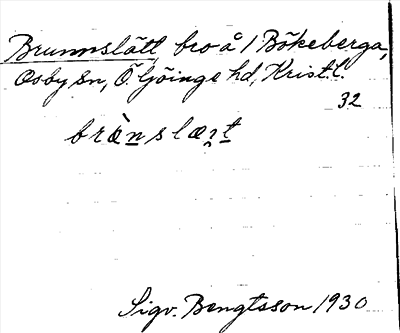 Brunnslätt, bro å 1 Bökeberga,
Osby sn, Ö Göinge hd, Krist. l.
32
brὰn̲slæt̲
Sigv. Bengtsson 1930